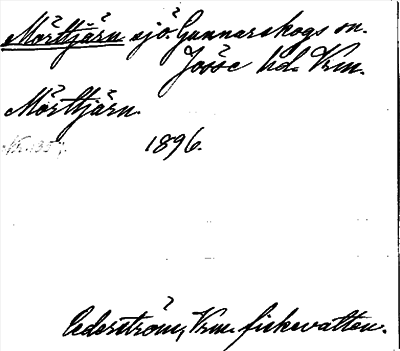 Mörttjärn sjö. Gunnarskogs sn.
Jösse hd. Vrm.
Mörttjärn.
1896.
Cederström, Vrm. fiskevatten.